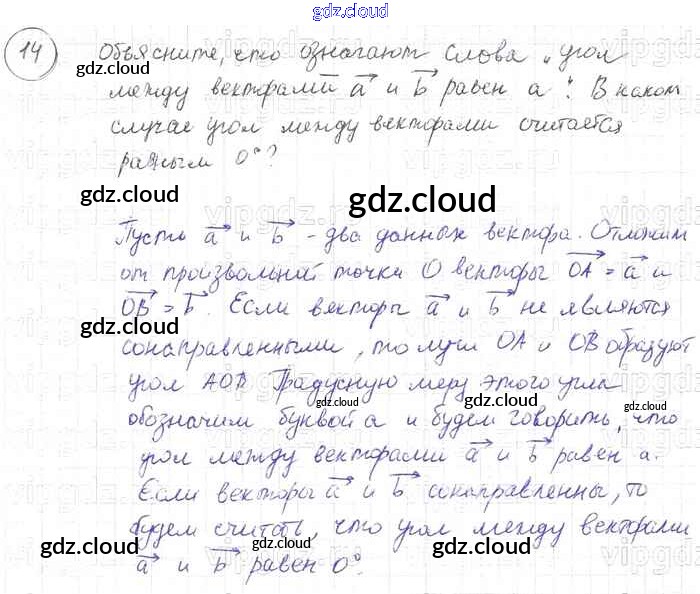 gdz.cloud
14 Объясните, что означают слова „угол
gdz.cloud gdz.cloud
между векторами a и b равен a“. В каком
случае угол между векторами считается
равным 0°?
gdz.cloud gdz.cloud gdz.cloud
Пусть a и b - два данных вектора. Отложим
от произвольной точки O векторы OA = a и
OB = b. Если векторы a и b не являются
gdz.cloud gdz.cloud
сонаправленными, то лучи OA и OB образуют
угол AOB. Градусную меру этого угла
gdz.cloud gdz.cloud gdz.cloud
обозначим буквой a и будем говорить, что
угол между векторами a и b равен a.
Если векторы a и b сонаправленны, то
будем считать, что угол между векторами
gdz.cloud gdz.cloud
a и b равен 0°.